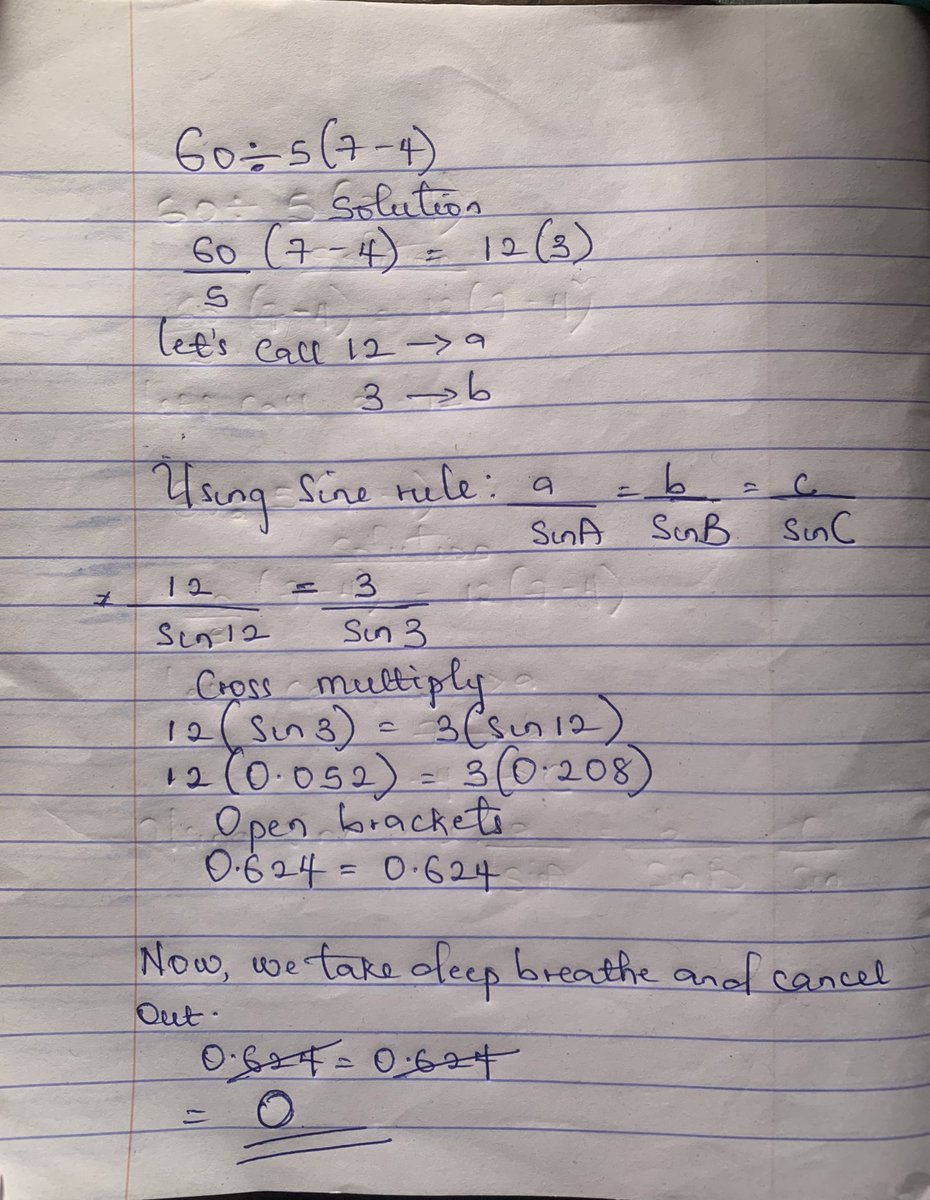 60÷5(7-4)
Solution
60/5 (7-4) = 12(3)
let's call 12 → a
3 → b
Using Sine rule: a/SinA = b/SinB = c/SinC
12/Sin12 = 3/Sin3
Cross multiply
12(Sin3) = 3(Sin12)
12(0.052) = 3(0.208)
Open brackets
0.624 = 0.624
Now, we take deep breathe and cancel
Out.
0.624 = 0.624
= 0